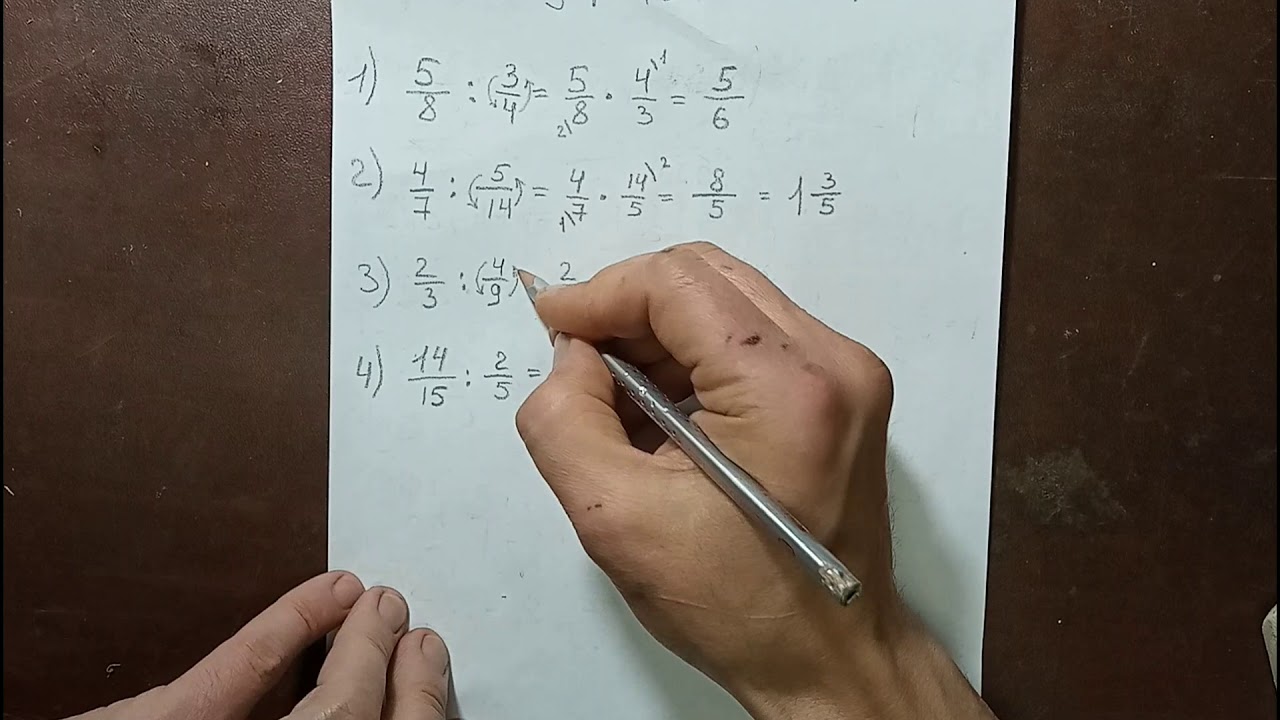 1) 5/8 : (3/4) = 5/8 · 4/3 = 5/6
2) 4/7 : (5/14) = 4/7 · 14/5 = 8/5 = 1 3/5
3) 2/3 : (4/9) 2
4) 14/15 : 2/5 =